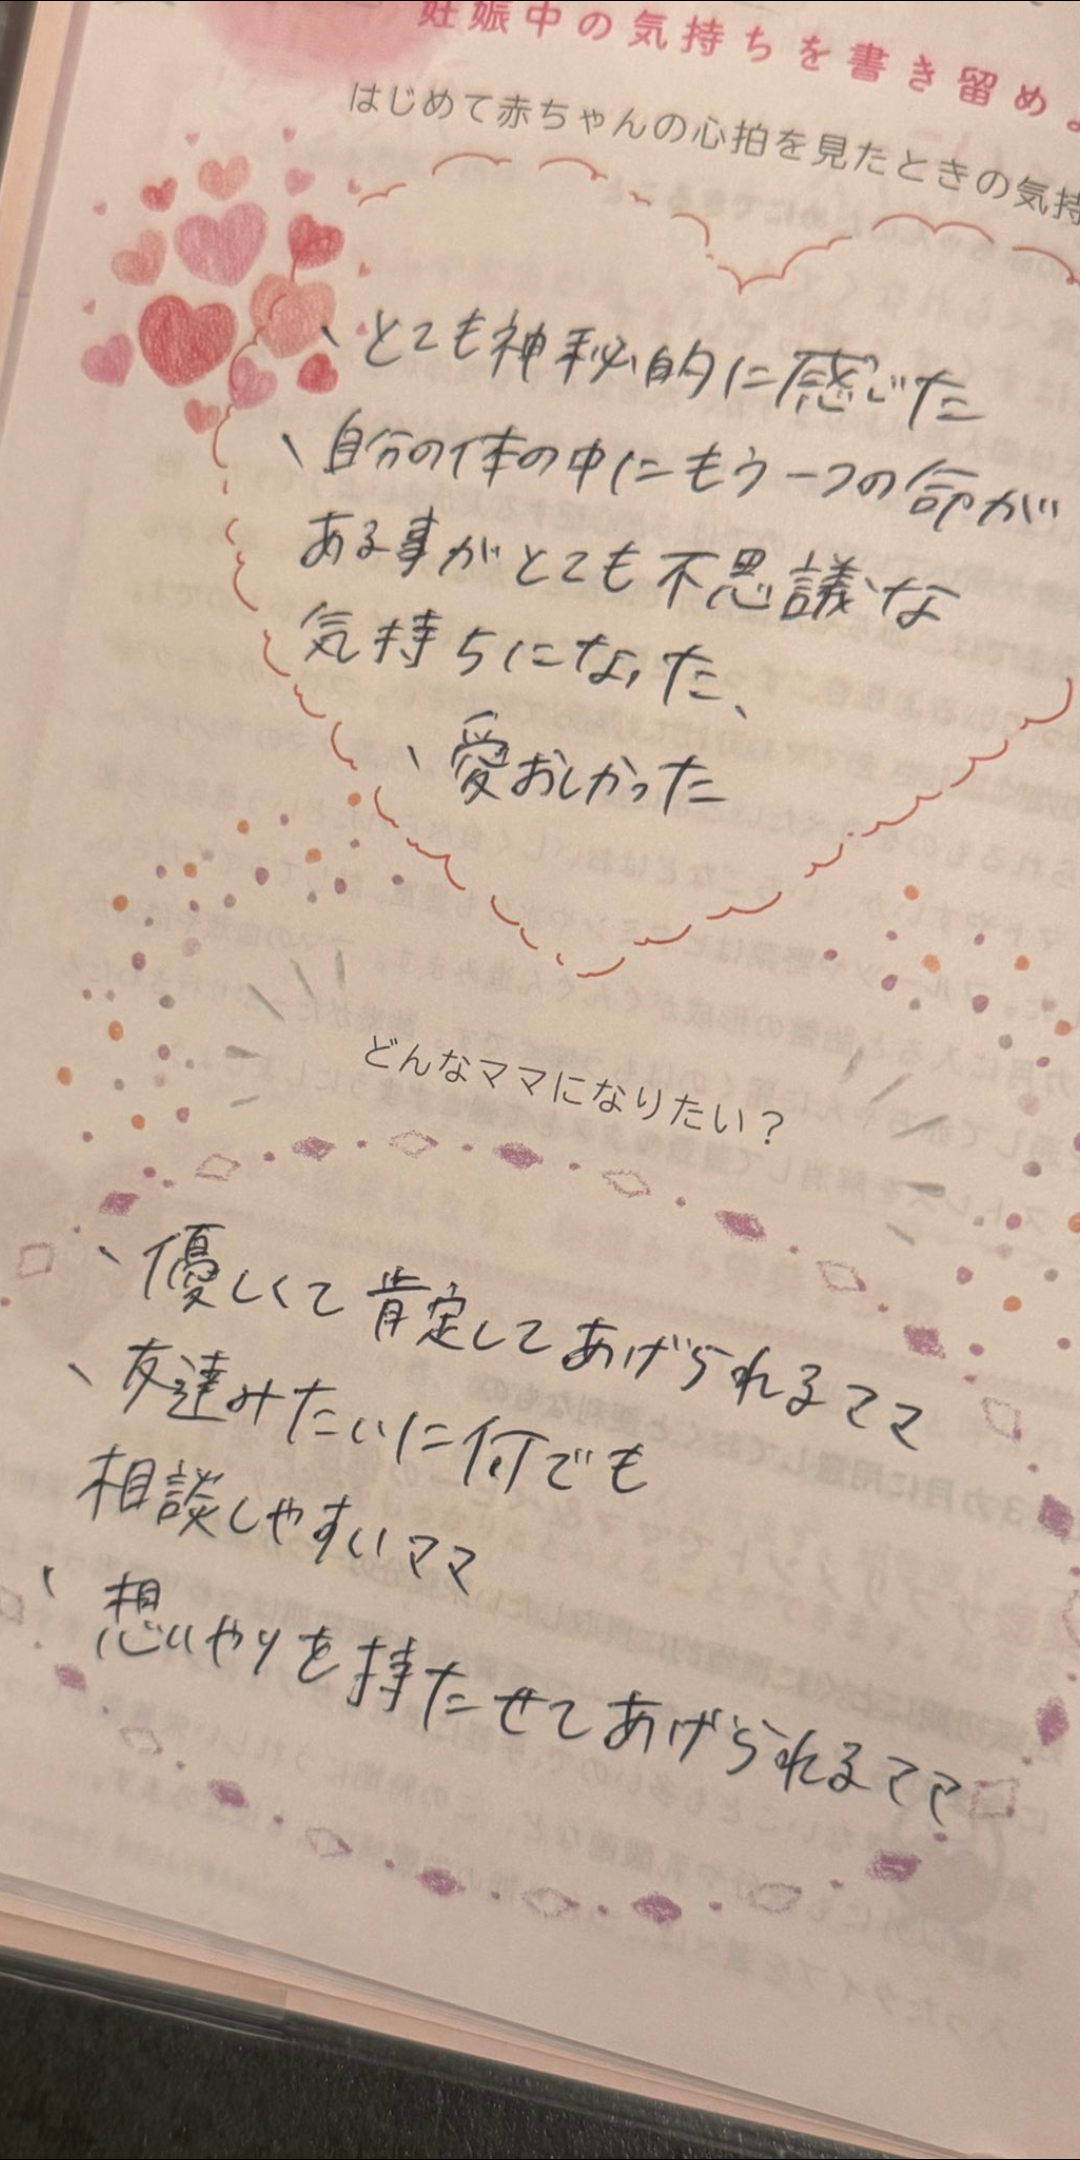 妊娠中の気持ちを書き留め
はじめて赤ちゃんの心拍を見たときの気持
、とても神秘的に感じた
、自分の体の中にもう一つの命が
ある事がとても不思議な
気持ちになった、
、愛おしかった
どんなママになりたい？
、優しくて肯定してあげられるママ
、友達みたいに何でも
相談しやすいママ
、想いやりを持たせてあげられるママ